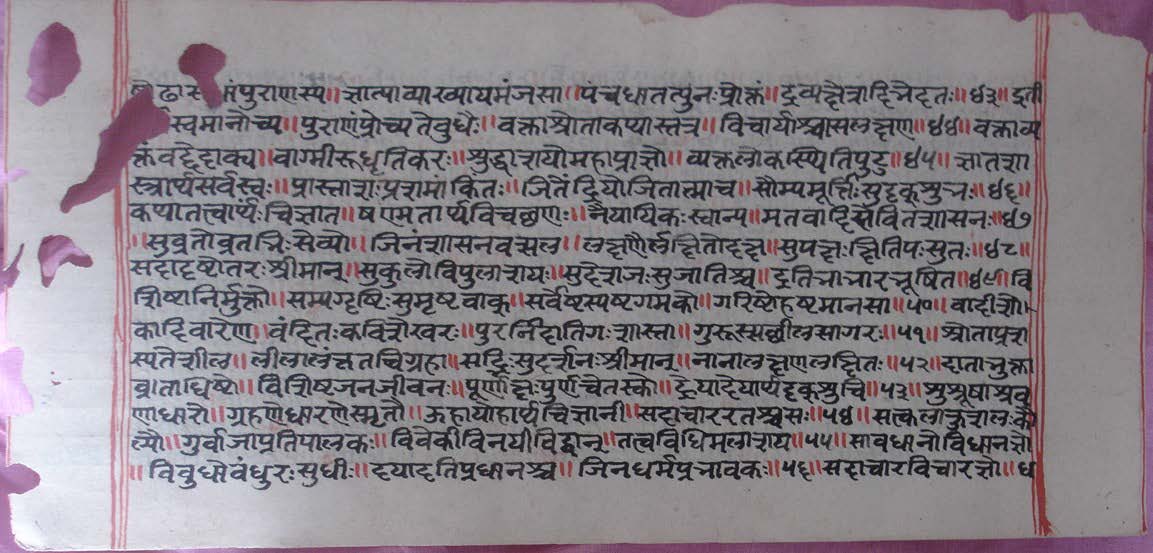 पुराणस्य॥ज्ञात्वाव्याख्यायमंजसा॥पंचधातत्पुनःप्रोक्तं॥द्रव्यक्षेत्रादिभेदतः॥४३॥द्रुती
स्वमानोच्य॥पुराणंप्रोच्यतेबुधैः॥वक्ताश्रोताकथास्तत्र॥विचार्याश्चासलक्षण॥४४॥वक्ताव्य
क्तंवदद्वाक्य॥वाग्मीरुधृतिकरः॥श्रुद्धाशयोमहाप्राज्ञो॥व्यक्तलोकस्थितिपुटु॥४५॥ज्ञातशा
स्त्रार्थसर्वस्वः॥प्रास्ताशःप्रशमांकितः॥जितेंद्रियोजितात्माच॥सौम्यमूर्त्तिःसुदृक्शुभः॥४६॥
कथातत्त्वार्थःचिज्ञात॥षणमतार्थविचछणः॥नैयायिकःस्वान्य॥मतवादिसेवितशासनः॥४७
॥सुव्रतोव्रतभिःसेव्यो॥जिनंशासनवत्सल॥लक्षणैर्लक्षितोदक्षो॥सुपक्षःक्षितिपःसुतः॥४८॥
सदादृष्टोतरःश्रीमान्॥सुकुलोविपुलाशयः॥सुदेशजःसुजातिश्च॥ द्रतिभाभारभूषित॥४९॥वि
शिष्टानिर्मुक्तो॥सम्यग्दृष्टिःसुमृष्टवाक्॥सर्वेषस्पष्टगमको॥गरिष्टोहृष्टमानसा॥५०॥वादीशो
कादिवारेण॥वंदितःकविशेखरः॥पुरनिंदातिगःशास्ता॥गुरुस्यछीलसागरः॥५१॥श्रोताप्रशा
स्यतेशील॥लीलालंकृतविग्रहा॥सद्दिःसुदर्शनःश्रीमान्॥नानालक्षणलक्षितः॥५२॥दाताभुक्ता
व्रताधिष्ट॥विशिष्टजनजीवनः॥पूर्णाक्षःपुर्णचेतस्को॥द्रेयादेयार्थदृक्शुचि॥५३॥श्रुश्रूषाश्रव
णाधारो॥ग्रहणेधारणेस्मृतौ॥ऊहायोहार्थविज्ञानी॥सदाचाररतश्चसः॥५४॥सत्कलाकुशलःकौ
ल्यो॥गुर्वाज्ञाप्रतिपालकः॥विवेकीविनयीविद्वान्॥तत्त्वविधिमलाशय॥५५॥सावधानोविधानज्ञो
॥विबुधोबंधुरःसुधीः॥दयादतिप्रधानश्च॥जिनधर्मप्रभावकः॥५६॥सदाचारविचारज्ञो॥ध